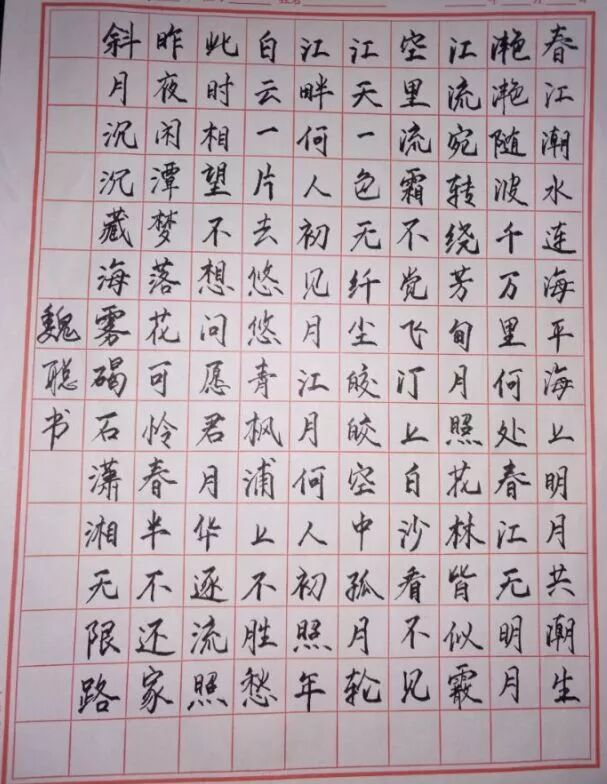 春江潮水连海平海上明月共潮生
滟滟随波千万里何处春江无明月
江流宛转绕芳甸月照花林皆似霰
空里流霜不觉飞汀上白沙看不见
江天一色无纤尘皎皎空中孤月轮
江畔何人初见月江月何人初照年
白云一片去悠悠青枫浦上不胜愁
此时相望不想问愿君月华逐流照
昨夜闲潭梦落花可怜春半不还家
斜月沉沉藏海雾碣石潇湘无限路
魏聪书